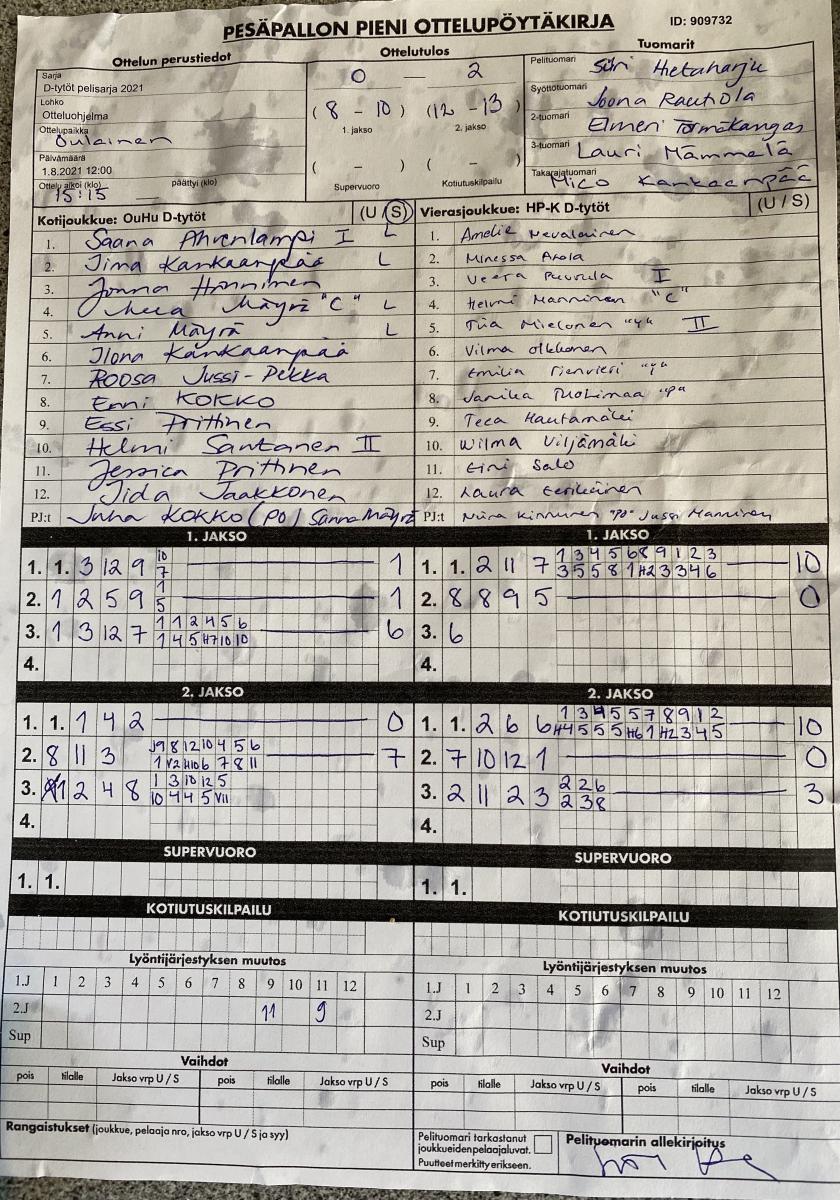 PESÄPALLON PIENI OTTELUPÖYTÄKIRJA
ID: 909732
Ottelun perustiedot
Sarja
D-tytöt pelisarja 2021
Lohko
Otteluohjelma
Ottelupaikka
Oulainen
Päivämäärä
1.8.2021 12:00
Ottelu alkoi (klo) päättyi (klo)
15:15
Ottelutulos
0 — 2
(8 - 10) (12 - 13)
1. jakso 2. jakso
( - ) ( - )
Supervuoro Kotiutuskilpailu
Tuomarit
Pelituomari Siiri Hietaharju
Syöttötuomari Joona Rautiola
2-tuomari Elmeri Törmäkangas
3-tuomari Lauri Mämmelä
Takarajatuomari Mico Kankaanpää
Kotijoukkue: OuHu D-tytöt (U / S)
1. Saana Ahvenlampi I L
2. Iina Kankaanpää L
3. Jonna Honninen
4. Mäyrä "C" L
5. Anni Mäyrä L
6. Ilona Kankaanpää
7. Roosa Jussi-Pekka
8. Enni KOKKO
9. Essi Prittinen
10. Helmi Santanen II
11. Jessica Prittinen
12. Iida Jaakkonen
PJ:t Juha KOKKO (PO) Sanna Mäyrä
Vierasjoukkue: HP-K D-tytöt (U / S)
1. Amelie Nevalainen
2. Minessa Arola
3. Veera Puurula I
4. Helmi Manninen "C"
5. Tiia Mielonen II
6. Vilma Olkkonen
7. Emilia
8. Janika Tuohimaa
9. Teea Hautamäki
10. Wilma Viljamäki
11. Eini Salo
12. Laura Eerikäinen
PJ:t Niina Kinnunen "PO" Jussi Manninen
1. JAKSO
1. 1. 3 12 9 10 1
7
2. 1 2 5 9 1 1
5
3. 1 3 12 7 1 1 2 4 5 6 6
1 4 5 H7 10 10
4.
1. JAKSO
1. 1. 2 11 7 1 3 4 5 6 8 9 1 2 3 10
3 5 5 8 1 H2 3 3 4 6
2. 8 8 9 5 0
3. 6
4.
2. JAKSO
1. 1. 1 4 2 0
2. 8 11 3 J9 8 12 10 4 5 6 7
1 V2 H10 6 7 8 11
3. 1 2 4 8 1 3 10 12 5
10 4 4 5 VII
4.
2. JAKSO
1. 1. 2 6 6 1 3 4 5 5 7 8 9 1 2 10
H4 5 5 5 H6 1 H2 3 4 5
2. 7 10 12 1 0
3. 2 11 2 3 2 2 6 3
2 3 8
4.
SUPERVUORO
1. 1.
SUPERVUORO
1. 1.
KOTIUTUSKILPAILU
KOTIUTUSKILPAILU
Lyöntijärjestyksen muutos
1.J 1 2 3 4 5 6 7 8 9 10 11 12
2.J 11 9
Sup
Lyöntijärjestyksen muutos
1.J 1 2 3 4 5 6 7 8 9 10 11 12
2.J
Sup
Vaihdot
pois tilalle Jakso vrp U / S pois tilalle Jakso vrp U / S
Vaihdot
pois tilalle Jakso vrp U / S pois tilalle Jakso vrp U / S
Rangaistukset (joukkue, pelaaja nro, jakso vrp U / S ja syy)
Pelituomari tarkastanut
joukkueiden pelaajaluvat.
Puutteet merkitty erikseen.
Pelituomarin allekirjoitus